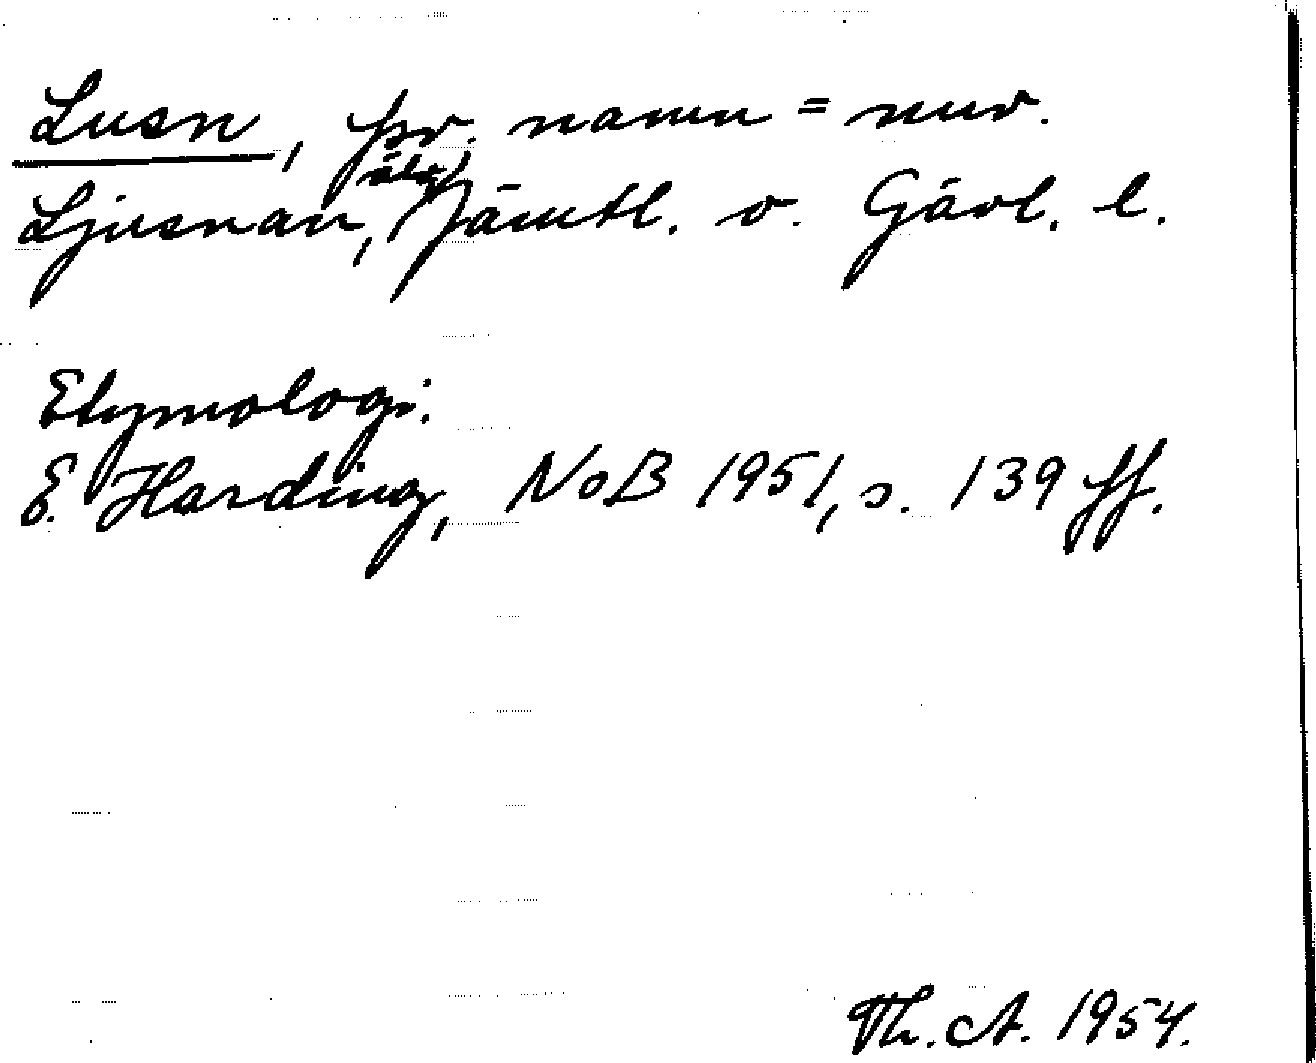 Lusn, pr. namn = nuv.
Ljusnan, älv, Jämtl. o. Gävl. l.
Etymologi.
E. Harding, NoB 1951, s. 139 ff.
Th. A. 1954.